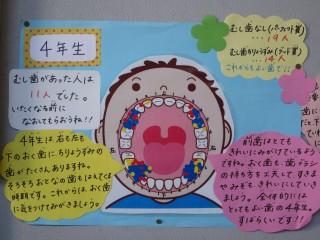 4年生
むし歯があった人は
11人でした。
いたくなる前に
なおしてもらおうね!!
むし歯なし(パーフェクト賞)
…19人
むし歯かんりょうずみ(グッド賞)
…14人
これからもよい歯で!!
右
左
4年生は、右も左も
下のおく歯にちりょうずみの
歯がたくさんありますね。
そろそろおとなの歯もはえてくる
時期です。これからは、おく歯
に気をつけてみがきましょう。
前歯はとても
きれいにみがけているよう
ですね。おく歯も歯ブラシ
の持ち方を工夫して、すきま
やみぞも、きれいにしていき
ましょう。全体的には
とってもよい歯の4年生。
すばらしいです!!